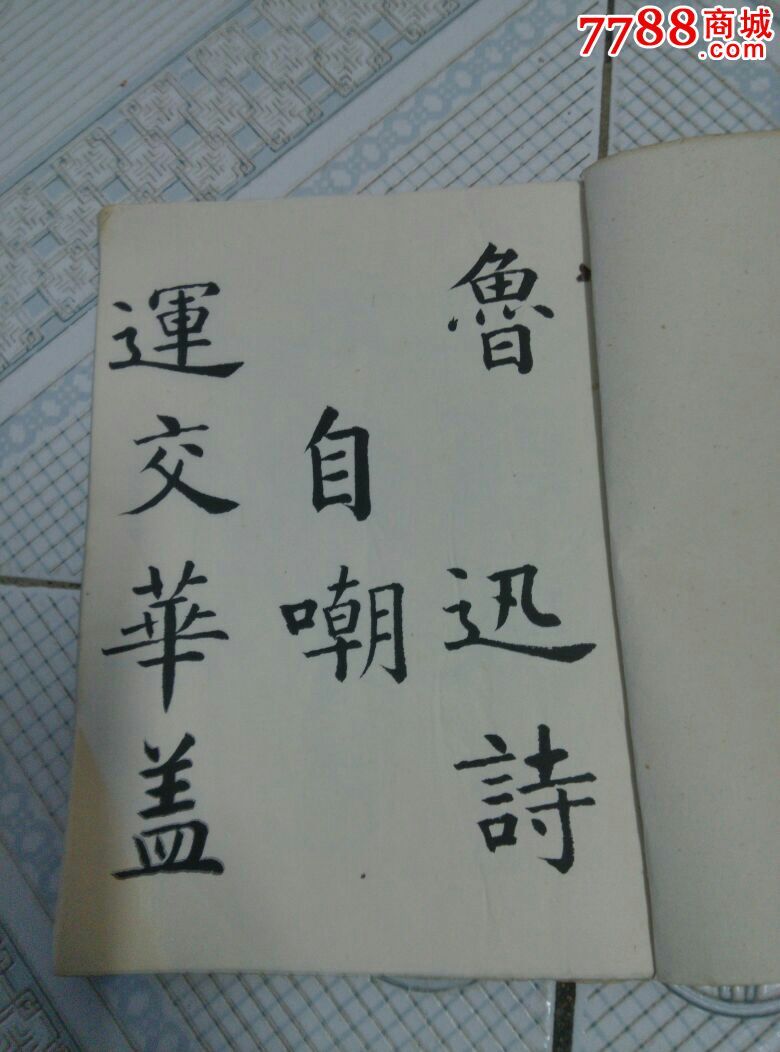 7788商城
.com
魯迅詩
自嘲
運交華盖